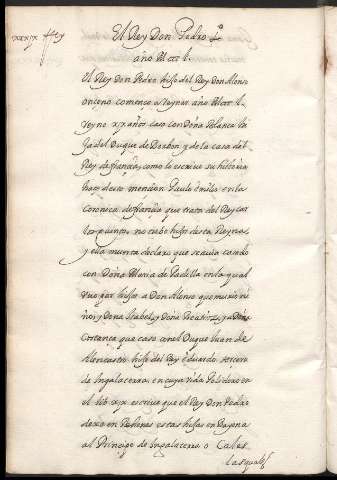 El Rey Don Pedro 1º
año M ccc l.
El Rey Don Pedro hijo del Rey Don Alonso
onceno començo a Reynar año M ccc l.
reyno xix años caso con Doña Blanca hi
ja del Duque de Borbon y de la casa del
Rey de francia, como lo escriue su historia
haze desto mencion Paulo emilio en la
Coronica de francia que trata del Rey Car
los quinto, no tubo hijos desta Reyna
y ella muerta declaro que se auia casado
con Doña Maria de Padilla en la qual
tuuo por hijos a Don Alonso que murio ni
ño, y Dona Isabel, y Doña Beatriz, y a Doña
Costança que caso con el Duque Iuan de
Alencastre hijo del Rey Eduardo tercero
de Ingalaterra. en cuya vida Polidoro en
el lib xix escriue que el Rey Don Pedro
dexo en Rehenes estas hijas en Bayona
al Principe de Ingalaterra o Cales
las quales